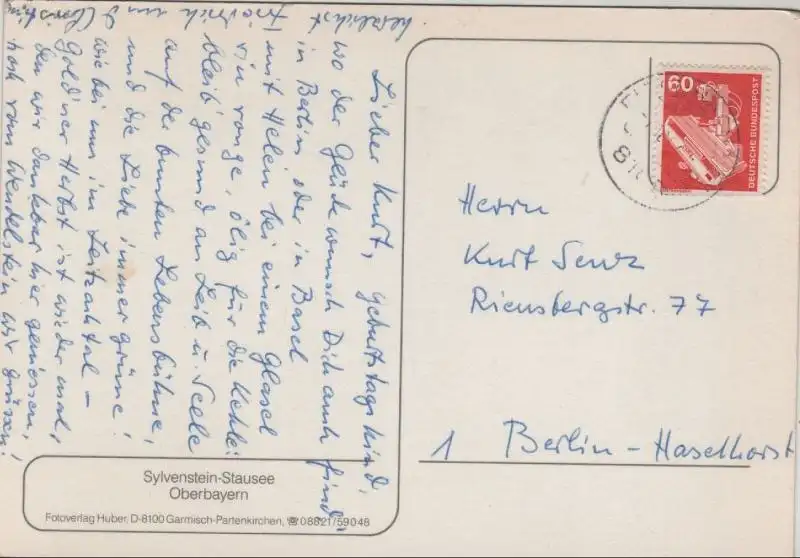 Lieber Kurt, Geburtstagskind,
wo der Glückwunsch Dich auch find',
in Berlin oder in Basel
mit Helen bei einem Glasel
vin rouge, ölig für die Kehle:
bleib' gesund an Leib u. Seele
auf der bunten Lebensbühne,
und die Liebe immer grüne!
wie bei uns im Leitzachtal –
Gold'ner Herbst ist wieder mal,
den wir dankbar hier geniessen,
hoch vom Wendelstein wir grüssen!
herzlichst
Friedrich und
Sylvenstein-Stausee
Oberbayern
Fotoverlag Huber, D-8100 Garmisch-Partenkirchen, ☎ 08821/59048
60
DEUTSCHE BUNDESPOST
Herrn
Kurt Senz
Riensbergstr. 77
1 Berlin-Haselhorst